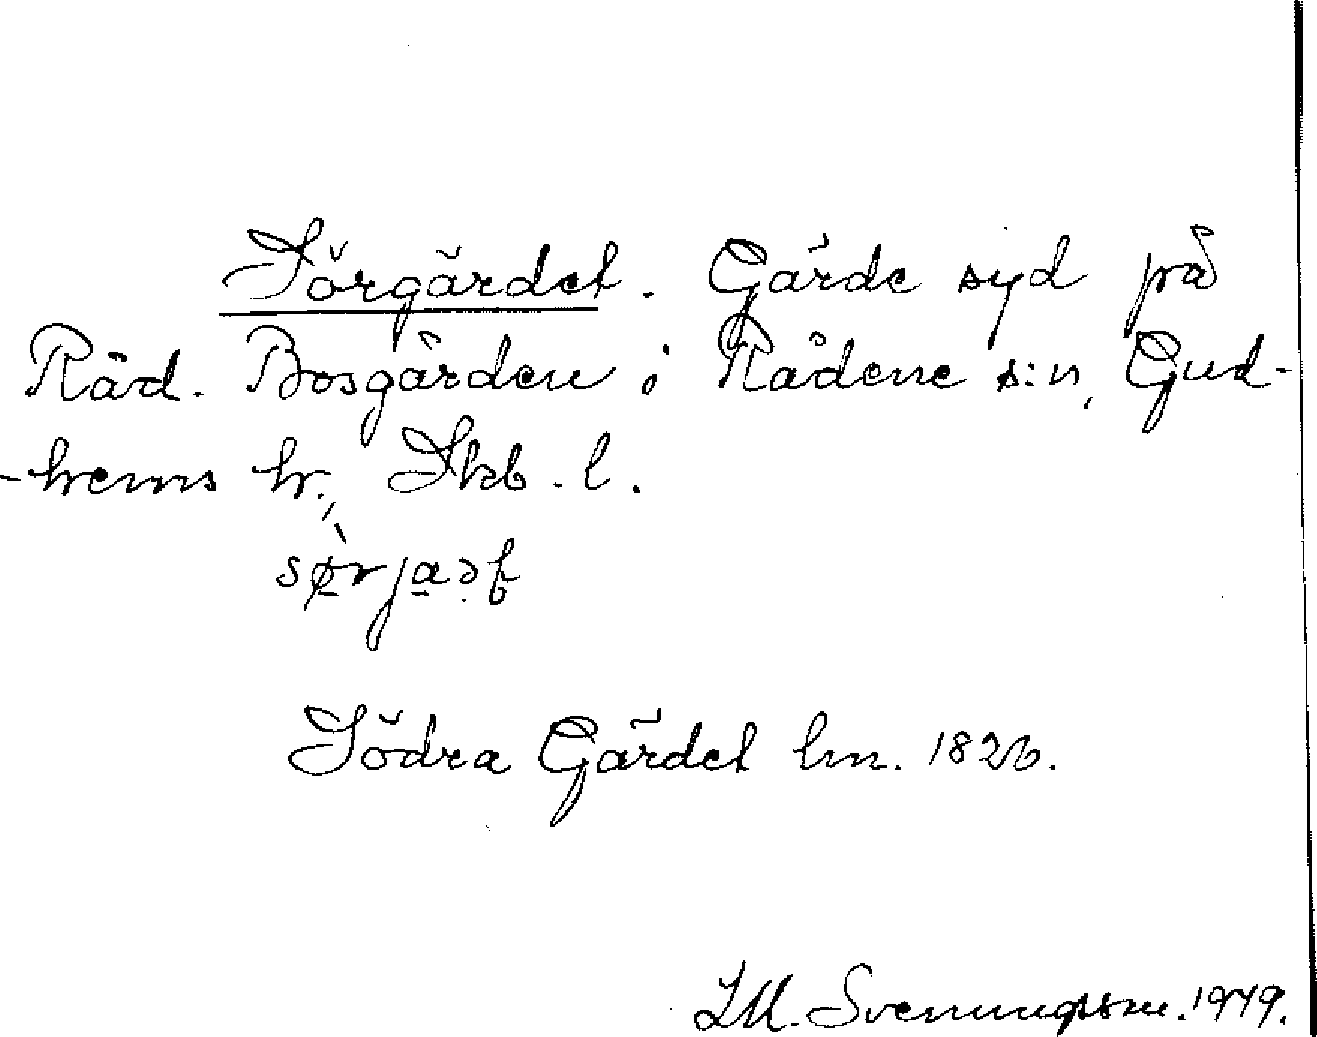 Sörgärdet. Gärde syd på
Råd. Bosgården i Rådene s:n, Gud-
-hems hr., Skb. l.
Södra Gärdet hm. 1826.
LM. Svenungsson. 1949.